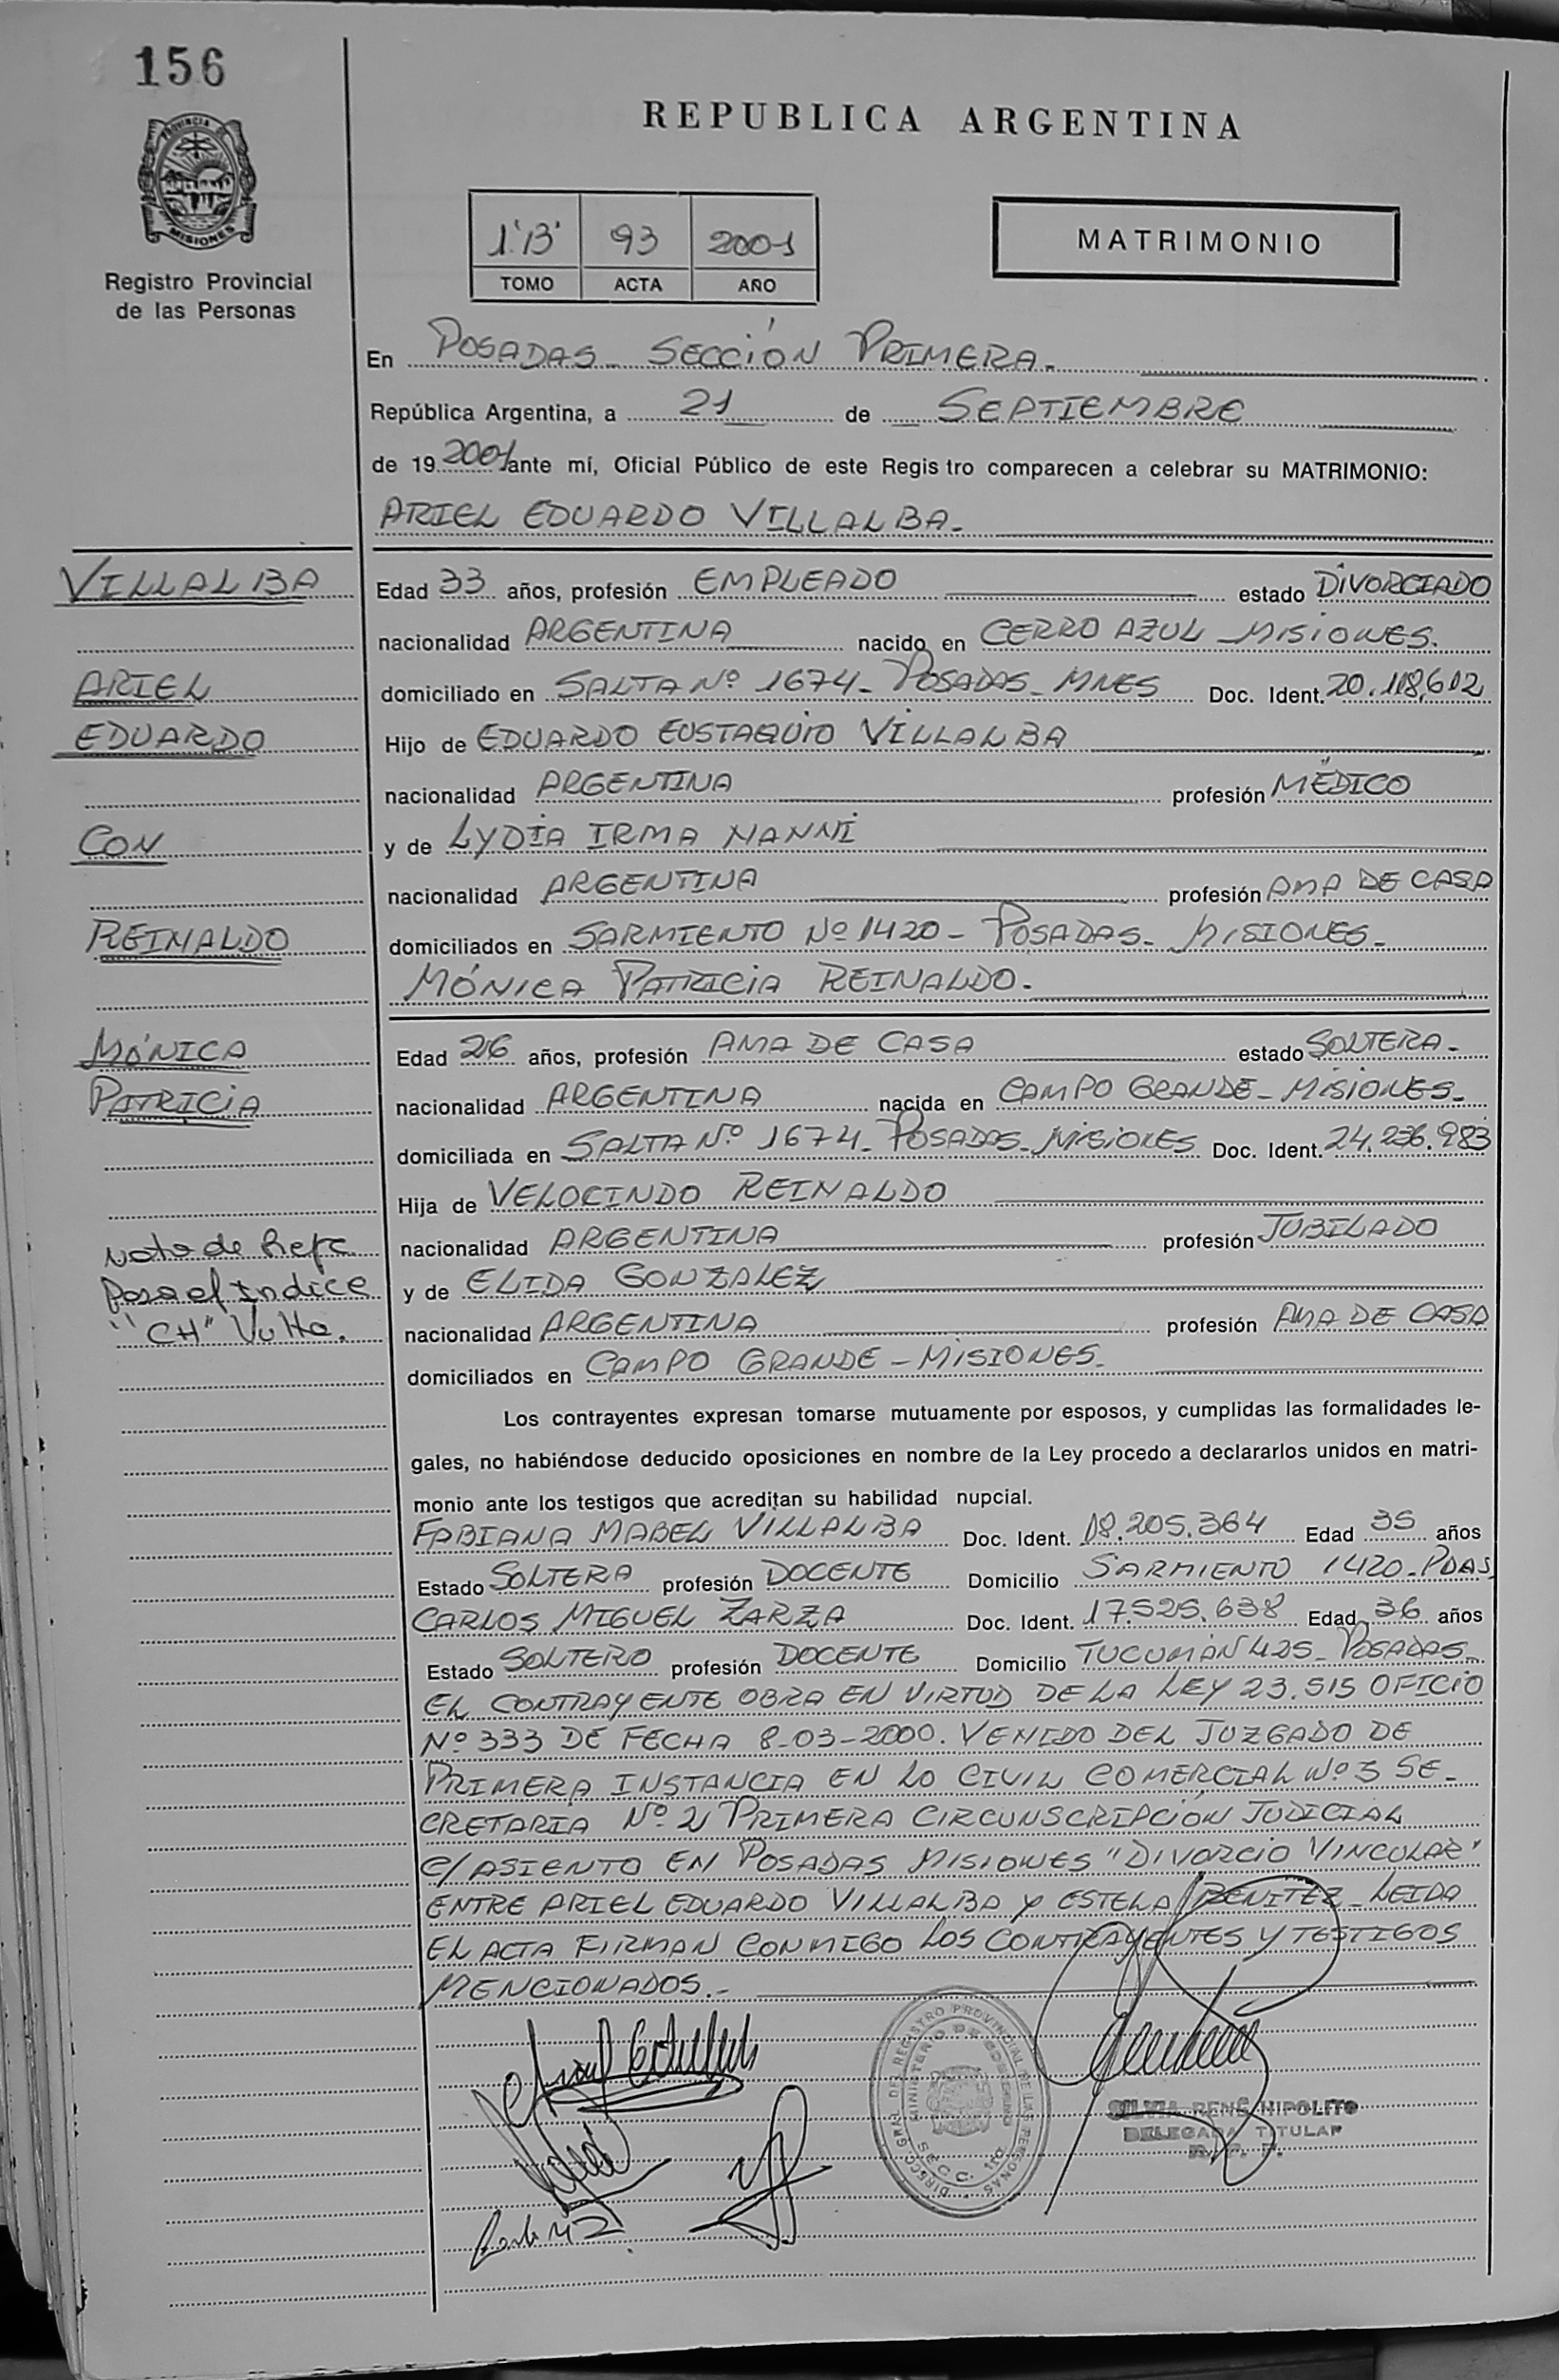 156
REPUBLICA ARGENTINA
PROVINCIA DE
MISIONES
Registro Provincial
de las Personas
1º"B" 93 2001
TOMO ACTA AÑO
MATRIMONIO
En POSADAS - SECCIÓN PRIMERA.
República Argentina, a 21 de SEPTIEMBRE
de 19 2001 ante mí, Oficial Público de este Regis tro comparecen a celebrar su MATRIMONIO:
ARIEL EDUARDO VILLALBA.
VILLALBA
ARIEL
EDUARDO
CON
REINALDO
MÓNICA
PATRICIA
Nota de Refc
Para el Indice
"CH" Vuelta.
Edad 33 años, profesión EMPLEADO estado DIVORCIADO
nacionalidad ARGENTINA nacido en CERRO AZUL - MISIONES.
domiciliado en SALTA Nº 1674 - POSADAS - MNES Doc. Ident. 20.118.612
Hijo de EDUARDO EUSTAQUIO VILLALBA
nacionalidad ARGENTINA profesión MÉDICO
y de LYDIA IRMA NANNI
nacionalidad ARGENTINA profesión AMA DE CASA
domiciliados en SARMIENTO Nº 1420 - POSADAS - MISIONES -
MÓNICA PATRICIA REINALDO.
Edad 26 años, profesión AMA DE CASA estado SOLTERA -
nacionalidad ARGENTINA nacida en CAMPO GRANDE - MISIONES -
domiciliada en SALTA Nº 1674 - POSADAS - MISIONES Doc. Ident. 24.236.983
Hija de VELOCINDO REINALDO
nacionalidad ARGENTINA profesión JUBILADO
y de ELIDA GONZALEZ
nacionalidad ARGENTINA profesión AMA DE CASA
domiciliados en CAMPO GRANDE - MISIONES -
Los contrayentes expresan tomarse mutuamente por esposos, y cumplidas las formalidades le-
gales, no habiéndose deducido oposiciones en nombre de la Ley procedo a declararlos unidos en matri-
monio ante los testigos que acreditan su habilidad nupcial.
FABIANA MABEL VILLALBA Doc. Ident. 18.205.364 Edad 35 años
Estado SOLTERA profesión DOCENTE Domicilio SARMIENTO 1420 - PDAS
CARLOS MIGUEL ZARZA Doc. Ident. 17.525.638 Edad 36 años
Estado SOLTERO profesión DOCENTE Domicilio TUCUMÁN 425 - POSADAS -
EL CONTRAYENTE OBRA EN VIRTUD DE LA LEY 23.515 OFICIO
Nº 333 DE FECHA 8-03-2000. VENIDO DEL JUZGADO DE
PRIMERA INSTANCIA EN LO CIVIL COMERCIAL Nº 3 SE-
CRETARIA Nº 2 PRIMERA CIRCUNSCRIPCIÓN JUDICIAL
C/ ASIENTO EN POSADAS MISIONES "DIVORCIO VINCULAR"
ENTRE ARIEL EDUARDO VILLALBA Y ESTELA BENITEZ - LEIDA
EL ACTA FIRMAN CONMIGO LOS CONTRAYENTES Y TESTIGOS
MENCIONADOS.-
DIRECC. GRAL. DEL REGISTRO PROVINCIAL DE LAS PERSONAS
MINISTERIO DE GOBIERNO
SECC. 1ra.
SILVIA RENÉ HIPOLITO
DELEGADA TITULAR
R. P. P.